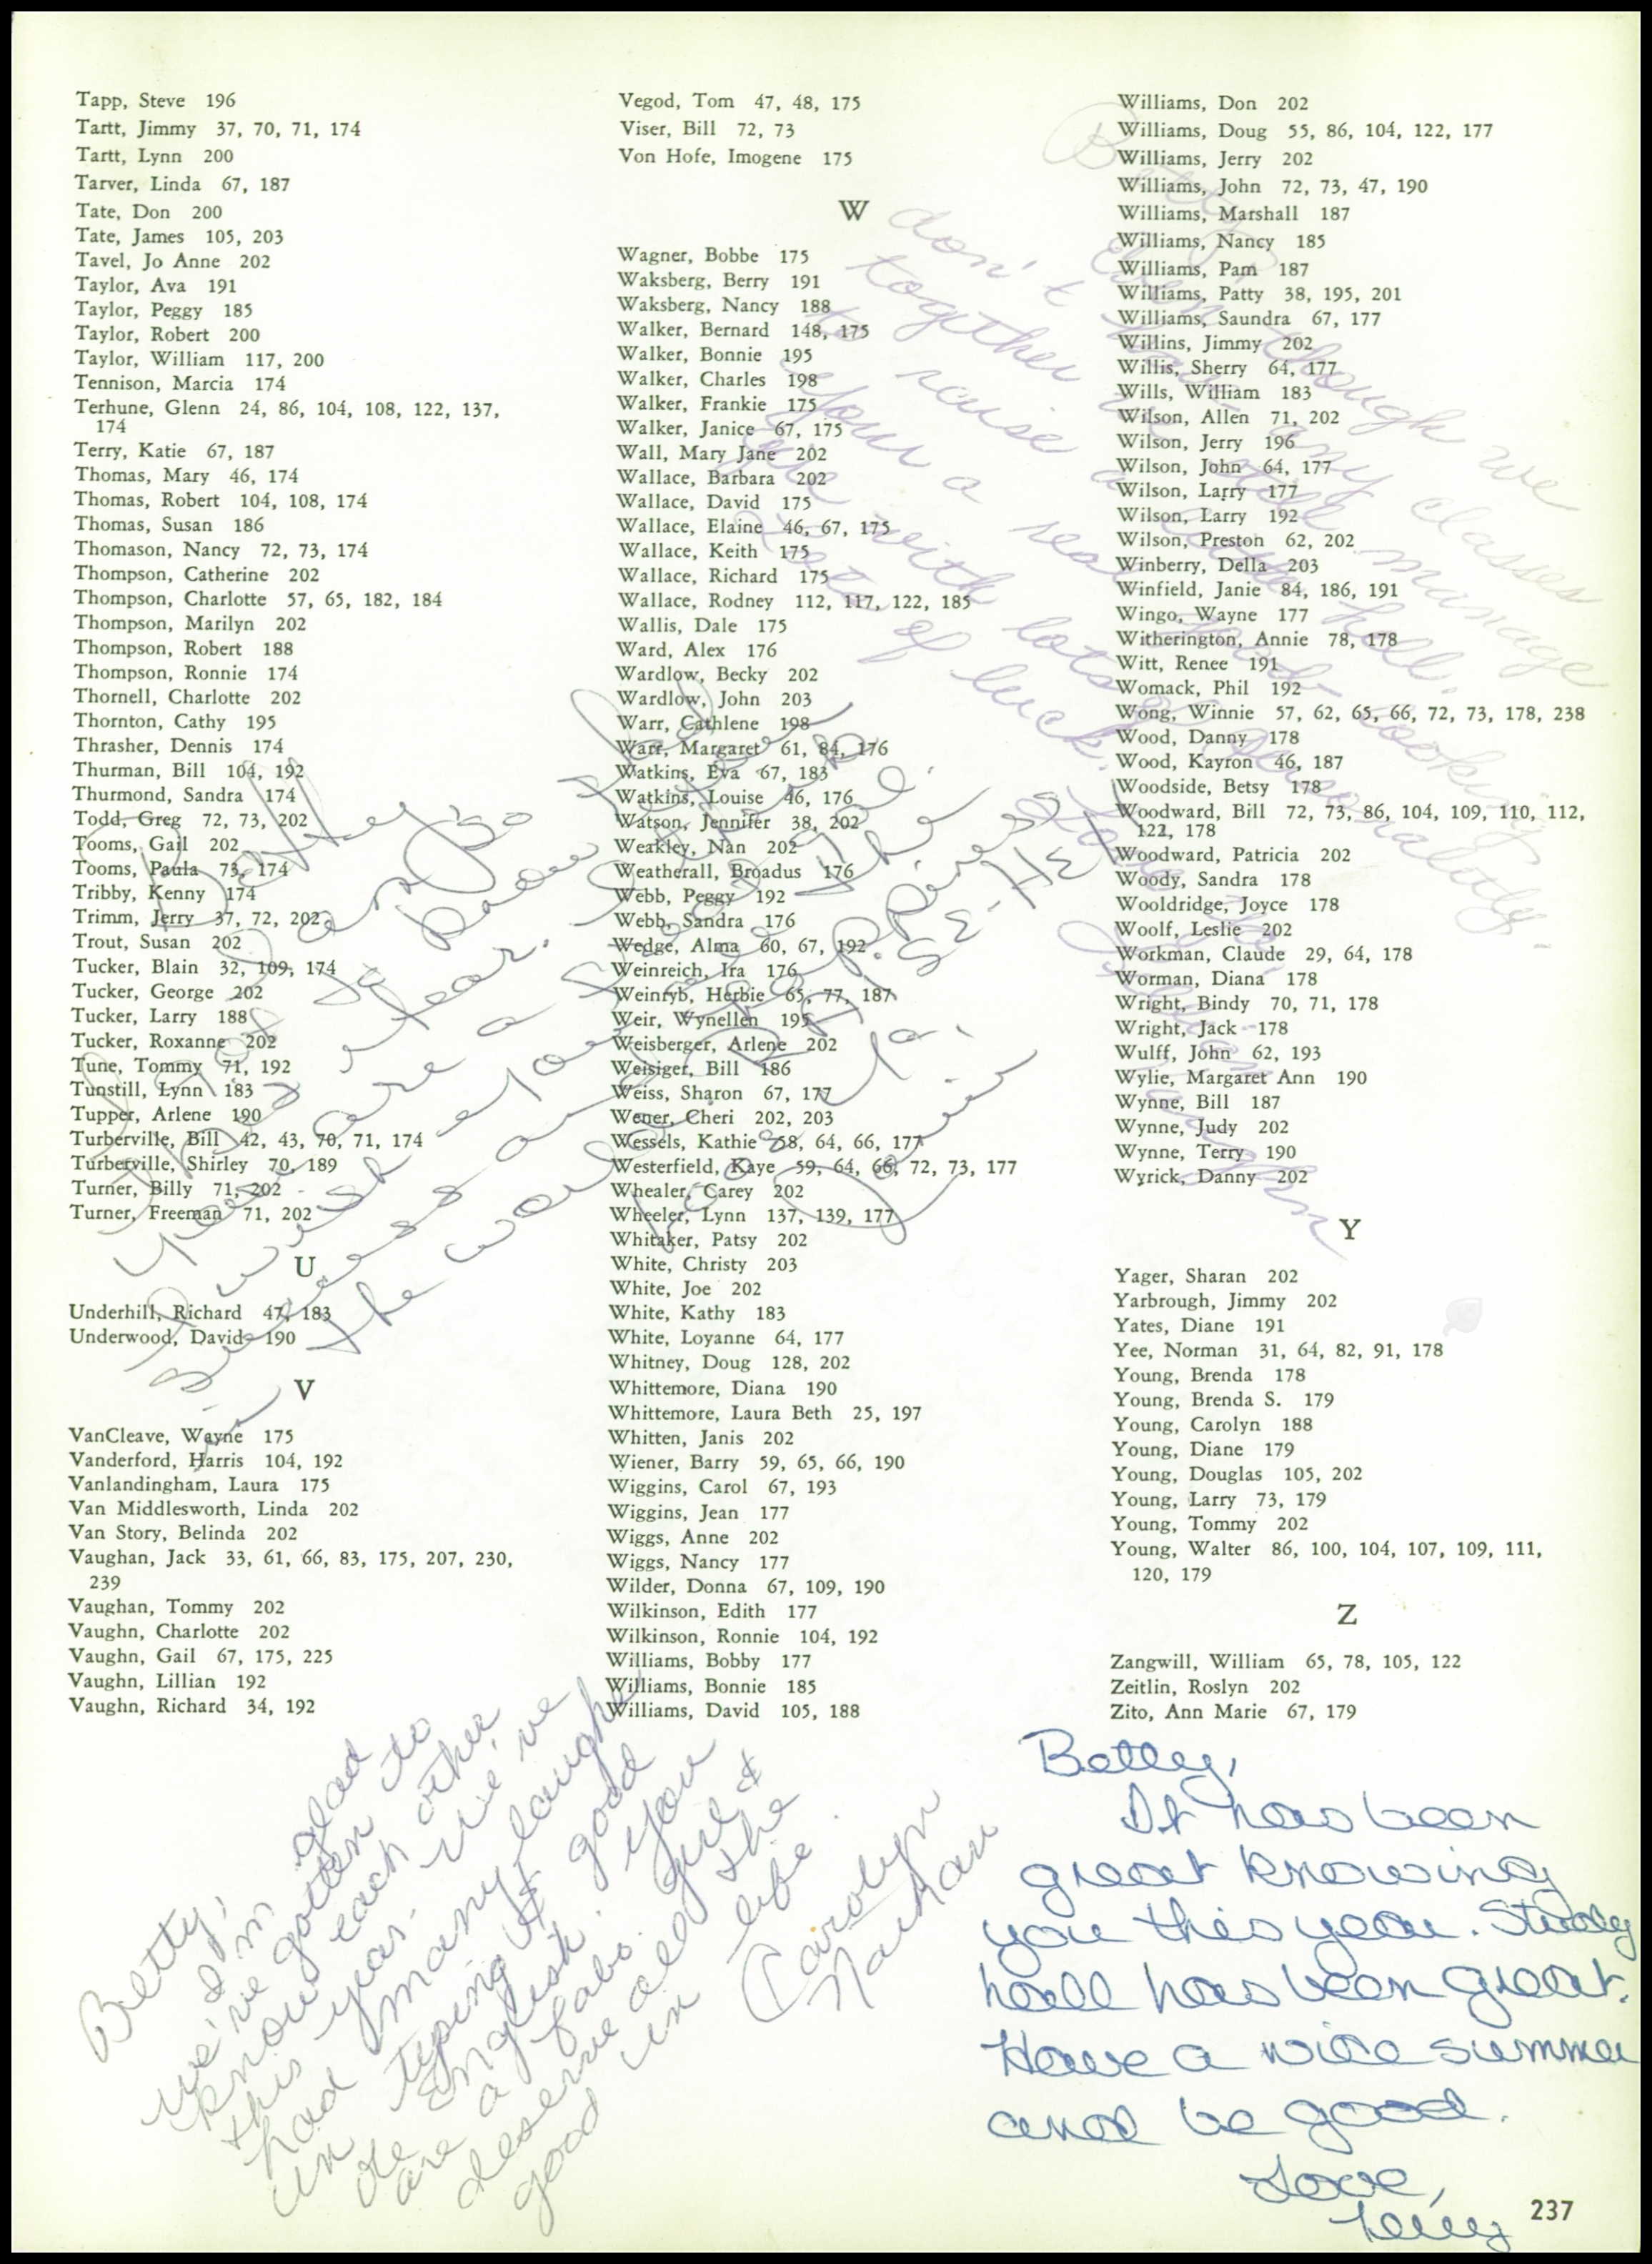 Tapp, Steve 196
Tartt, Jimmy 37, 70, 71, 174
Tartt, Lynn 200
Tarver, Linda 67, 187
Tate, Don 200
Tate, James 105, 203
Tavel, Jo Anne 202
Taylor, Ava 191
Taylor, Peggy 185
Taylor, Robert 200
Taylor, William 117, 200
Tennison, Marcia 174
Terhune, Glenn 24, 86, 104, 108, 122, 137,
174
Terry, Katie 67, 187
Thomas, Mary 46, 174
Thomas, Robert 104, 108, 174
Thomas, Susan 186
Thomason, Nancy 72, 73, 174
Thompson, Catherine 202
Thompson, Charlotte 57, 65, 182, 184
Thompson, Marilyn 202
Thompson, Robert 188
Thompson, Ronnie 174
Thornell, Charlotte 202
Thornton, Cathy 195
Thrasher, Dennis 174
Thurman, Bill 104, 192
Thurmond, Sandra 174
Todd, Greg 72, 73, 202
Tooms, Gail 202
Tooms, Paula 73, 174
Tribby, Kenny 174
Trimm, Jerry 37, 72, 202
Trout, Susan 202
Tucker, Blain 32, 109, 174
Tucker, George 202
Tucker, Larry 188
Tucker, Roxanne 202
Tune, Tommy 71, 192
Tunstill, Lynn 183
Tupper, Arlene 190
Turberville, Bill 42, 43, 70, 71, 174
Turberville, Shirley 70, 189
Turner, Billy 71, 202
Turner, Freeman 71, 202
U
Underhill, Richard 47, 183
Underwood, David 190
V
VanCleave, Wayne 175
Vanderford, Harris 104, 192
Vanlandingham, Laura 175
Van Middlesworth, Linda 202
Van Story, Belinda 202
Vaughan, Jack 33, 61, 66, 83, 175, 207, 230,
239
Vaughan, Tommy 202
Vaughn, Charlotte 202
Vaughn, Gail 67, 175, 225
Vaughn, Lillian 192
Vaughn, Richard 34, 192
Vegod, Tom 47, 48, 175
Viser, Bill 72, 73
Von Hofe, Imogene 175
W
Wagner, Bobbe 175
Waksberg, Berry 191
Waksberg, Nancy 188
Walker, Bernard 148, 175
Walker, Bonnie 195
Walker, Charles 198
Walker, Frankie 175
Walker, Janice 67, 175
Wall, Mary Jane 202
Wallace, Barbara 202
Wallace, David 175
Wallace, Elaine 46, 67, 175
Wallace, Keith 175
Wallace, Richard 175
Wallace, Rodney 112, 117, 122, 185
Wallis, Dale 175
Ward, Alex 176
Wardlow, Becky 202
Wardlow, John 203
Warr, Cathlene 198
Warr, Margaret 61, 84, 176
Watkins, Eva 67, 183
Watkins, Louise 46, 176
Watson, Jennifer 38, 202
Weakley, Nan 202
Weatherall, Broadus 176
Webb, Peggy 192
Webb, Sandra 176
Wedge, Alma 60, 67, 192
Weinreich, Ira 176
Weinryb, Herbie 65, 77, 187
Weir, Wynellen 195
Weisberger, Arlene 202
Weisiger, Bill 186
Weiss, Sharon 67, 177
Wener, Cheri 202, 203
Wessels, Kathie 58, 64, 66, 177
Westerfield, Kaye 59, 64, 66, 72, 73, 177
Whealer, Carey 202
Wheeler, Lynn 137, 139, 177
Whitaker, Patsy 202
White, Christy 203
White, Joe 202
White, Kathy 183
White, Loyanne 64, 177
Whitney, Doug 128, 202
Whittemore, Diana 190
Whittemore, Laura Beth 25, 197
Whitten, Janis 202
Wiener, Barry 59, 65, 66, 190
Wiggins, Carol 67, 193
Wiggins, Jean 177
Wiggs, Anne 202
Wiggs, Nancy 177
Wilder, Donna 67, 109, 190
Wilkinson, Edith 177
Wilkinson, Ronnie 104, 192
Williams, Bobby 177
Williams, Bonnie 185
Williams, David 105, 188
Williams, Don 202
Williams, Doug 55, 86, 104, 122, 177
Williams, Jerry 202
Williams, John 72, 73, 47, 190
Williams, Marshall 187
Williams, Nancy 185
Williams, Pam 187
Williams, Patty 38, 195, 201
Williams, Saundra 67, 177
Willins, Jimmy 202
Willis, Sherry 64, 177
Wills, William 183
Wilson, Allen 71, 202
Wilson, Jerry 196
Wilson, John 64, 177
Wilson, Larry 177
Wilson, Larry 192
Wilson, Preston 62, 202
Winberry, Della 203
Winfield, Janie 84, 186, 191
Wingo, Wayne 177
Witherington, Annie 78, 178
Witt, Renee 191
Womack, Phil 192
Wong, Winnie 57, 62, 65, 66, 72, 73, 178, 238
Wood, Danny 178
Wood, Kayron 46, 187
Woodside, Betsy 178
Woodward, Bill 72, 73, 86, 104, 109, 110, 112,
122, 178
Woodward, Patricia 202
Woody, Sandra 178
Wooldridge, Joyce 178
Woolf, Leslie 202
Workman, Claude 29, 64, 178
Worman, Diana 178
Wright, Bindy 70, 71, 178
Wright, Jack 178
Wulff, John 62, 193
Wylie, Margaret Ann 190
Wynne, Bill 187
Wynne, Judy 202
Wynne, Terry 190
Wyrick, Danny 202
Y
Yager, Sharan 202
Yarbrough, Jimmy 202
Yates, Diane 191
Yee, Norman 31, 64, 82, 91, 178
Young, Brenda 178
Young, Brenda S. 179
Young, Carolyn 188
Young, Diane 179
Young, Douglas 105, 202
Young, Larry 73, 179
Young, Tommy 202
Young, Walter 86, 100, 104, 107, 109, 111,
120, 179
Z
Zangwill, William 65, 78, 105, 122
Zeitlin, Roslyn 202
Zito, Ann Marie 67, 179
Betty,
Even though we
don't have any classes
together we still manage
to raise a little hell.
your a real good looking
girl with lots of personality.
lots of luck
Betty
I am so glad
that I got to know
you better
this year.
You are a
I wish you all the
success and happiness
in the world
Love Ya,
Betty,
I'm glad
we've gotten to
know each other
this year. We've
had many laughs
in typing & good
ole English. You
are a fabo. girl &
deserve all the
good in life.
Carolyn
Nauman
Betty,
It has been
great knowing
you this year. Study
hall has been great.
Have a nice summer
and be good.
Love,
Terry
237